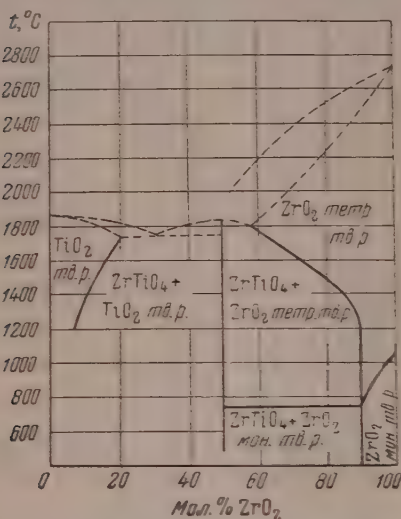 t,°C
2800
2600
2400
2200
2000
1800
1600
1400
1200
1000
800
600
TiO₂
тд.р.
ZrTiO₄+
TiO₂ тд.р.
ZrTiO₄+
ZrO₂ тетр.тд.р.
ZrO₂ тетр
тд.р.
ZrTiO₄+ZrO₂
мон. тд.р.
ZrO₂
мон. тд.р.
0 20 40 60 80 100
Мол. % ZrO₂